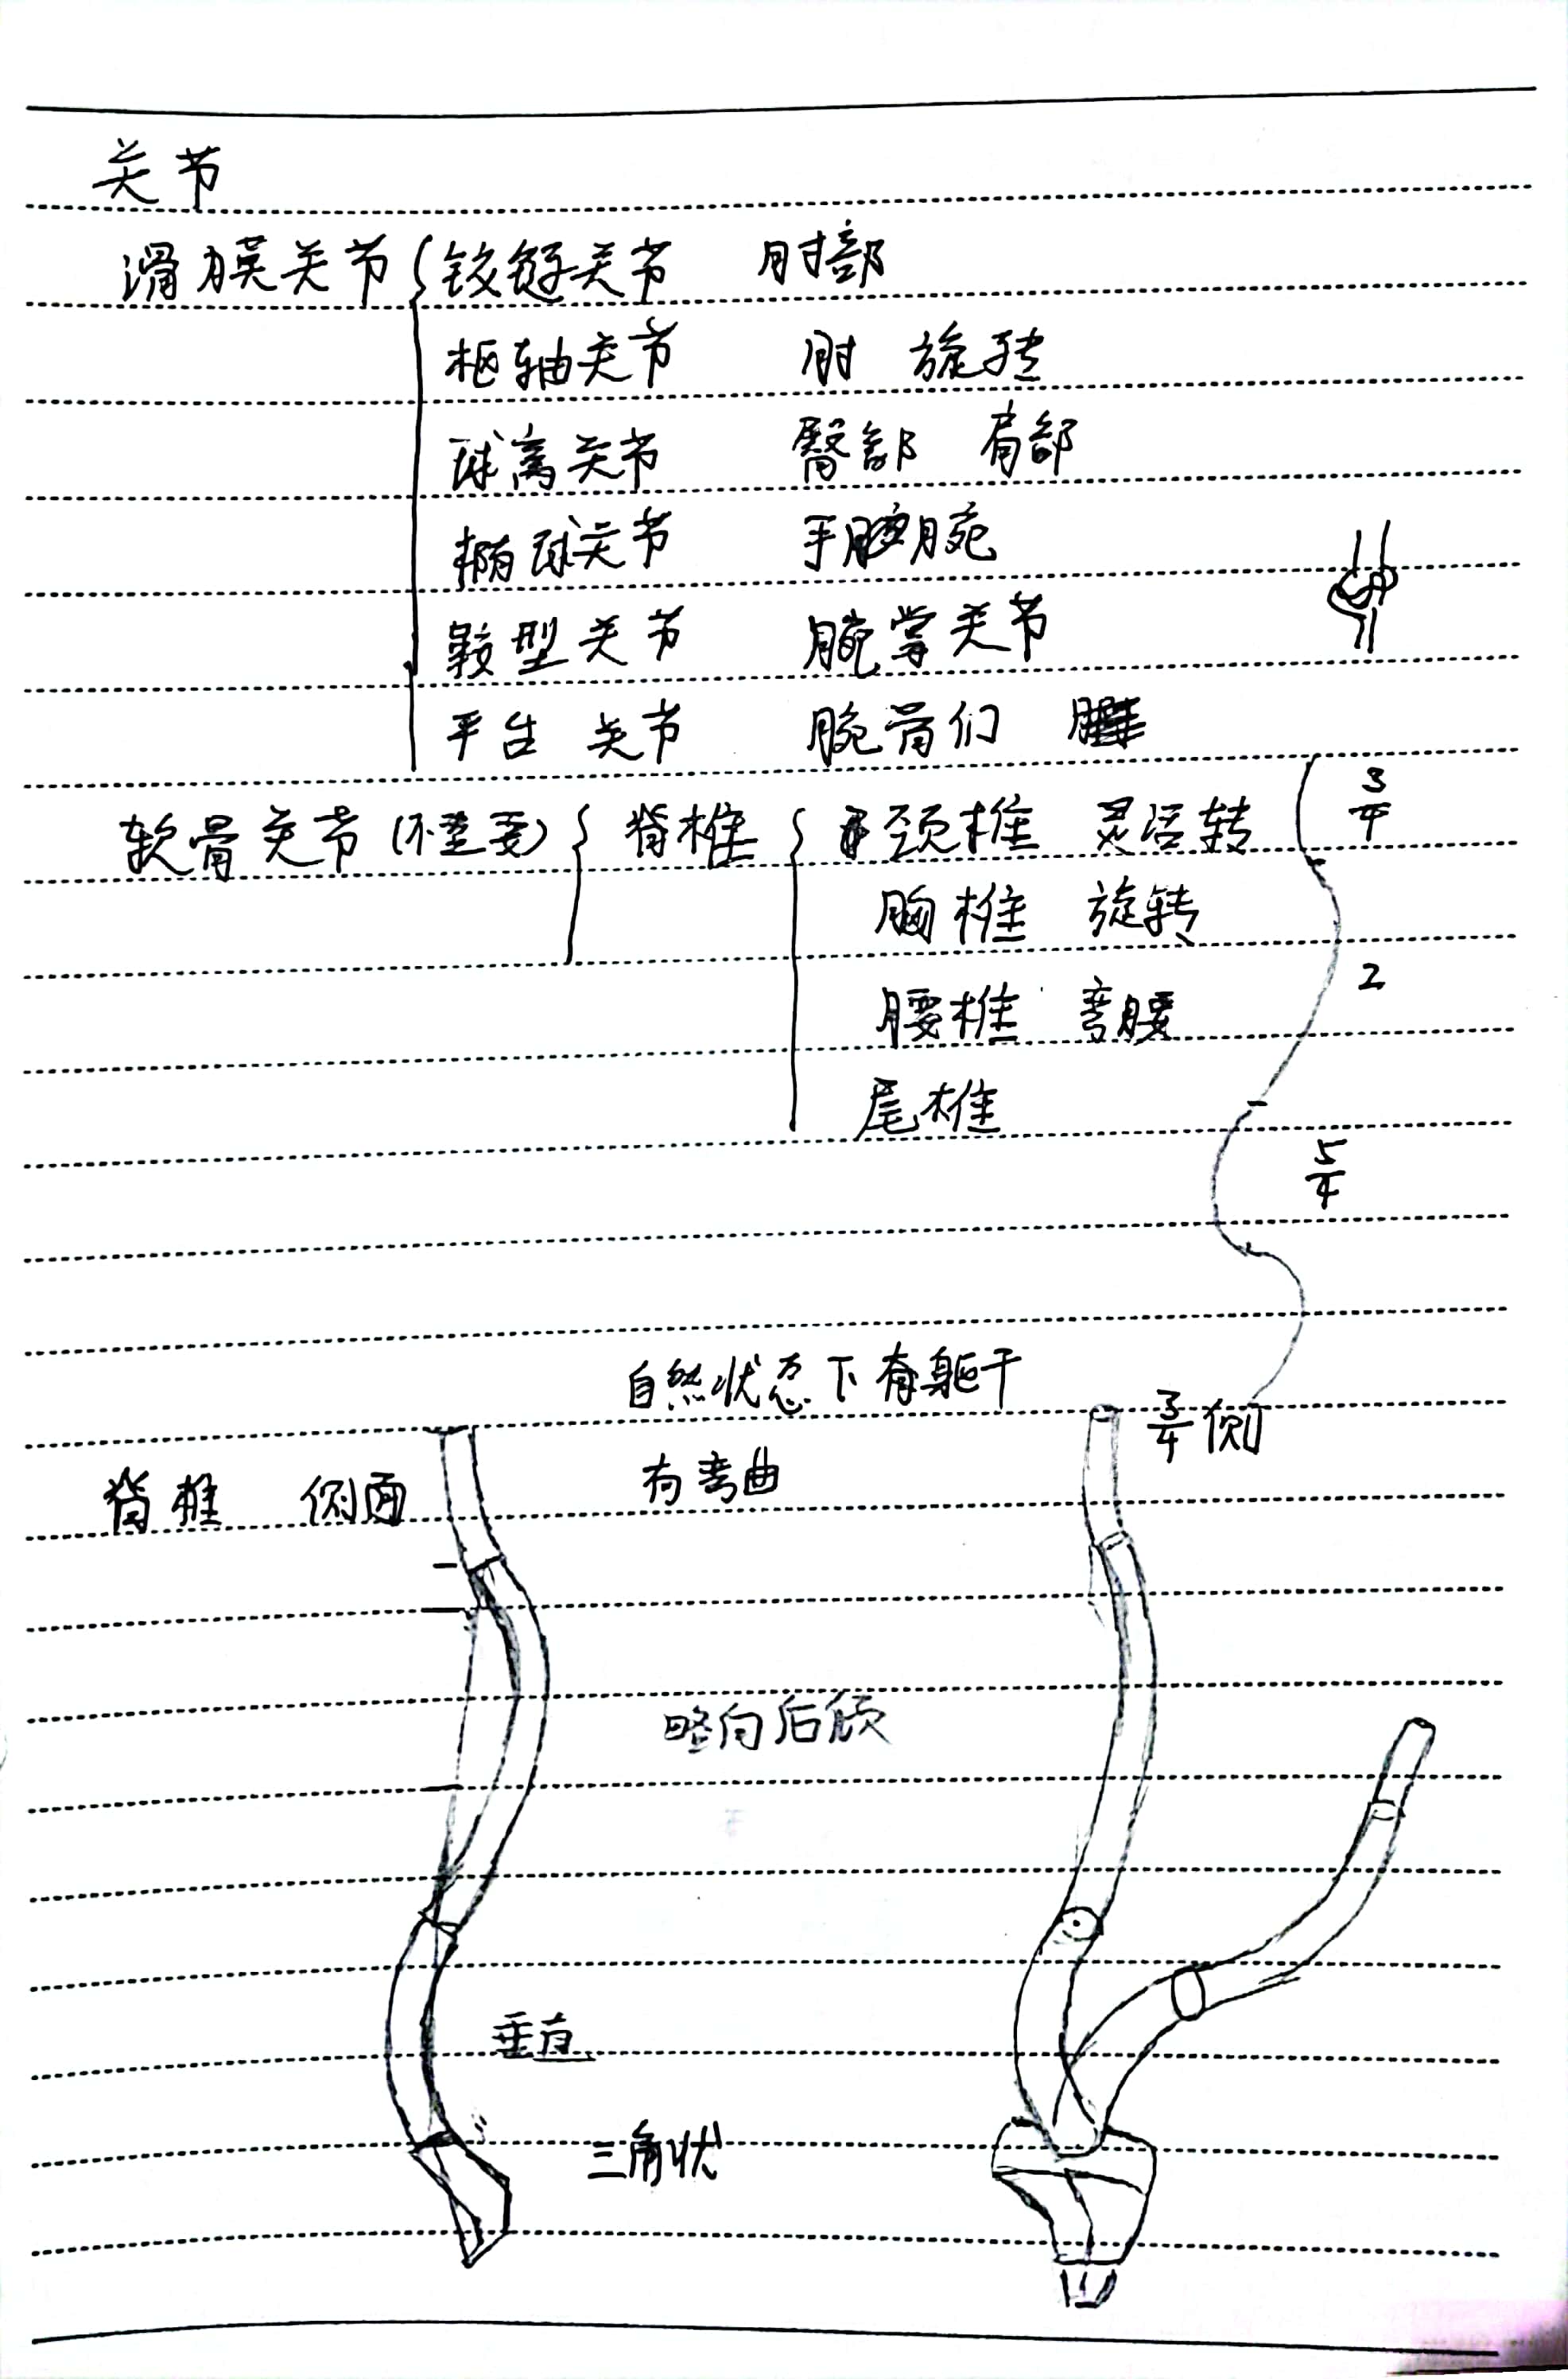 关节
滑膜关节 { 铰链关节 肘部
枢轴关节 肘 旋转
球离关节 臀部 肩部
椭球关节 手腕
鞍型关节 腕掌关节
平台 关节 腕骨们
软骨关节 (不重要) { 脊椎 { 颈椎 灵活转 3/4
胸椎 旋转
2
腰椎 弯腰
尾椎
5/4
自然状态下有躯干
3/4 侧
脊椎 侧面 有弯曲
略向后倾
垂直
三角状